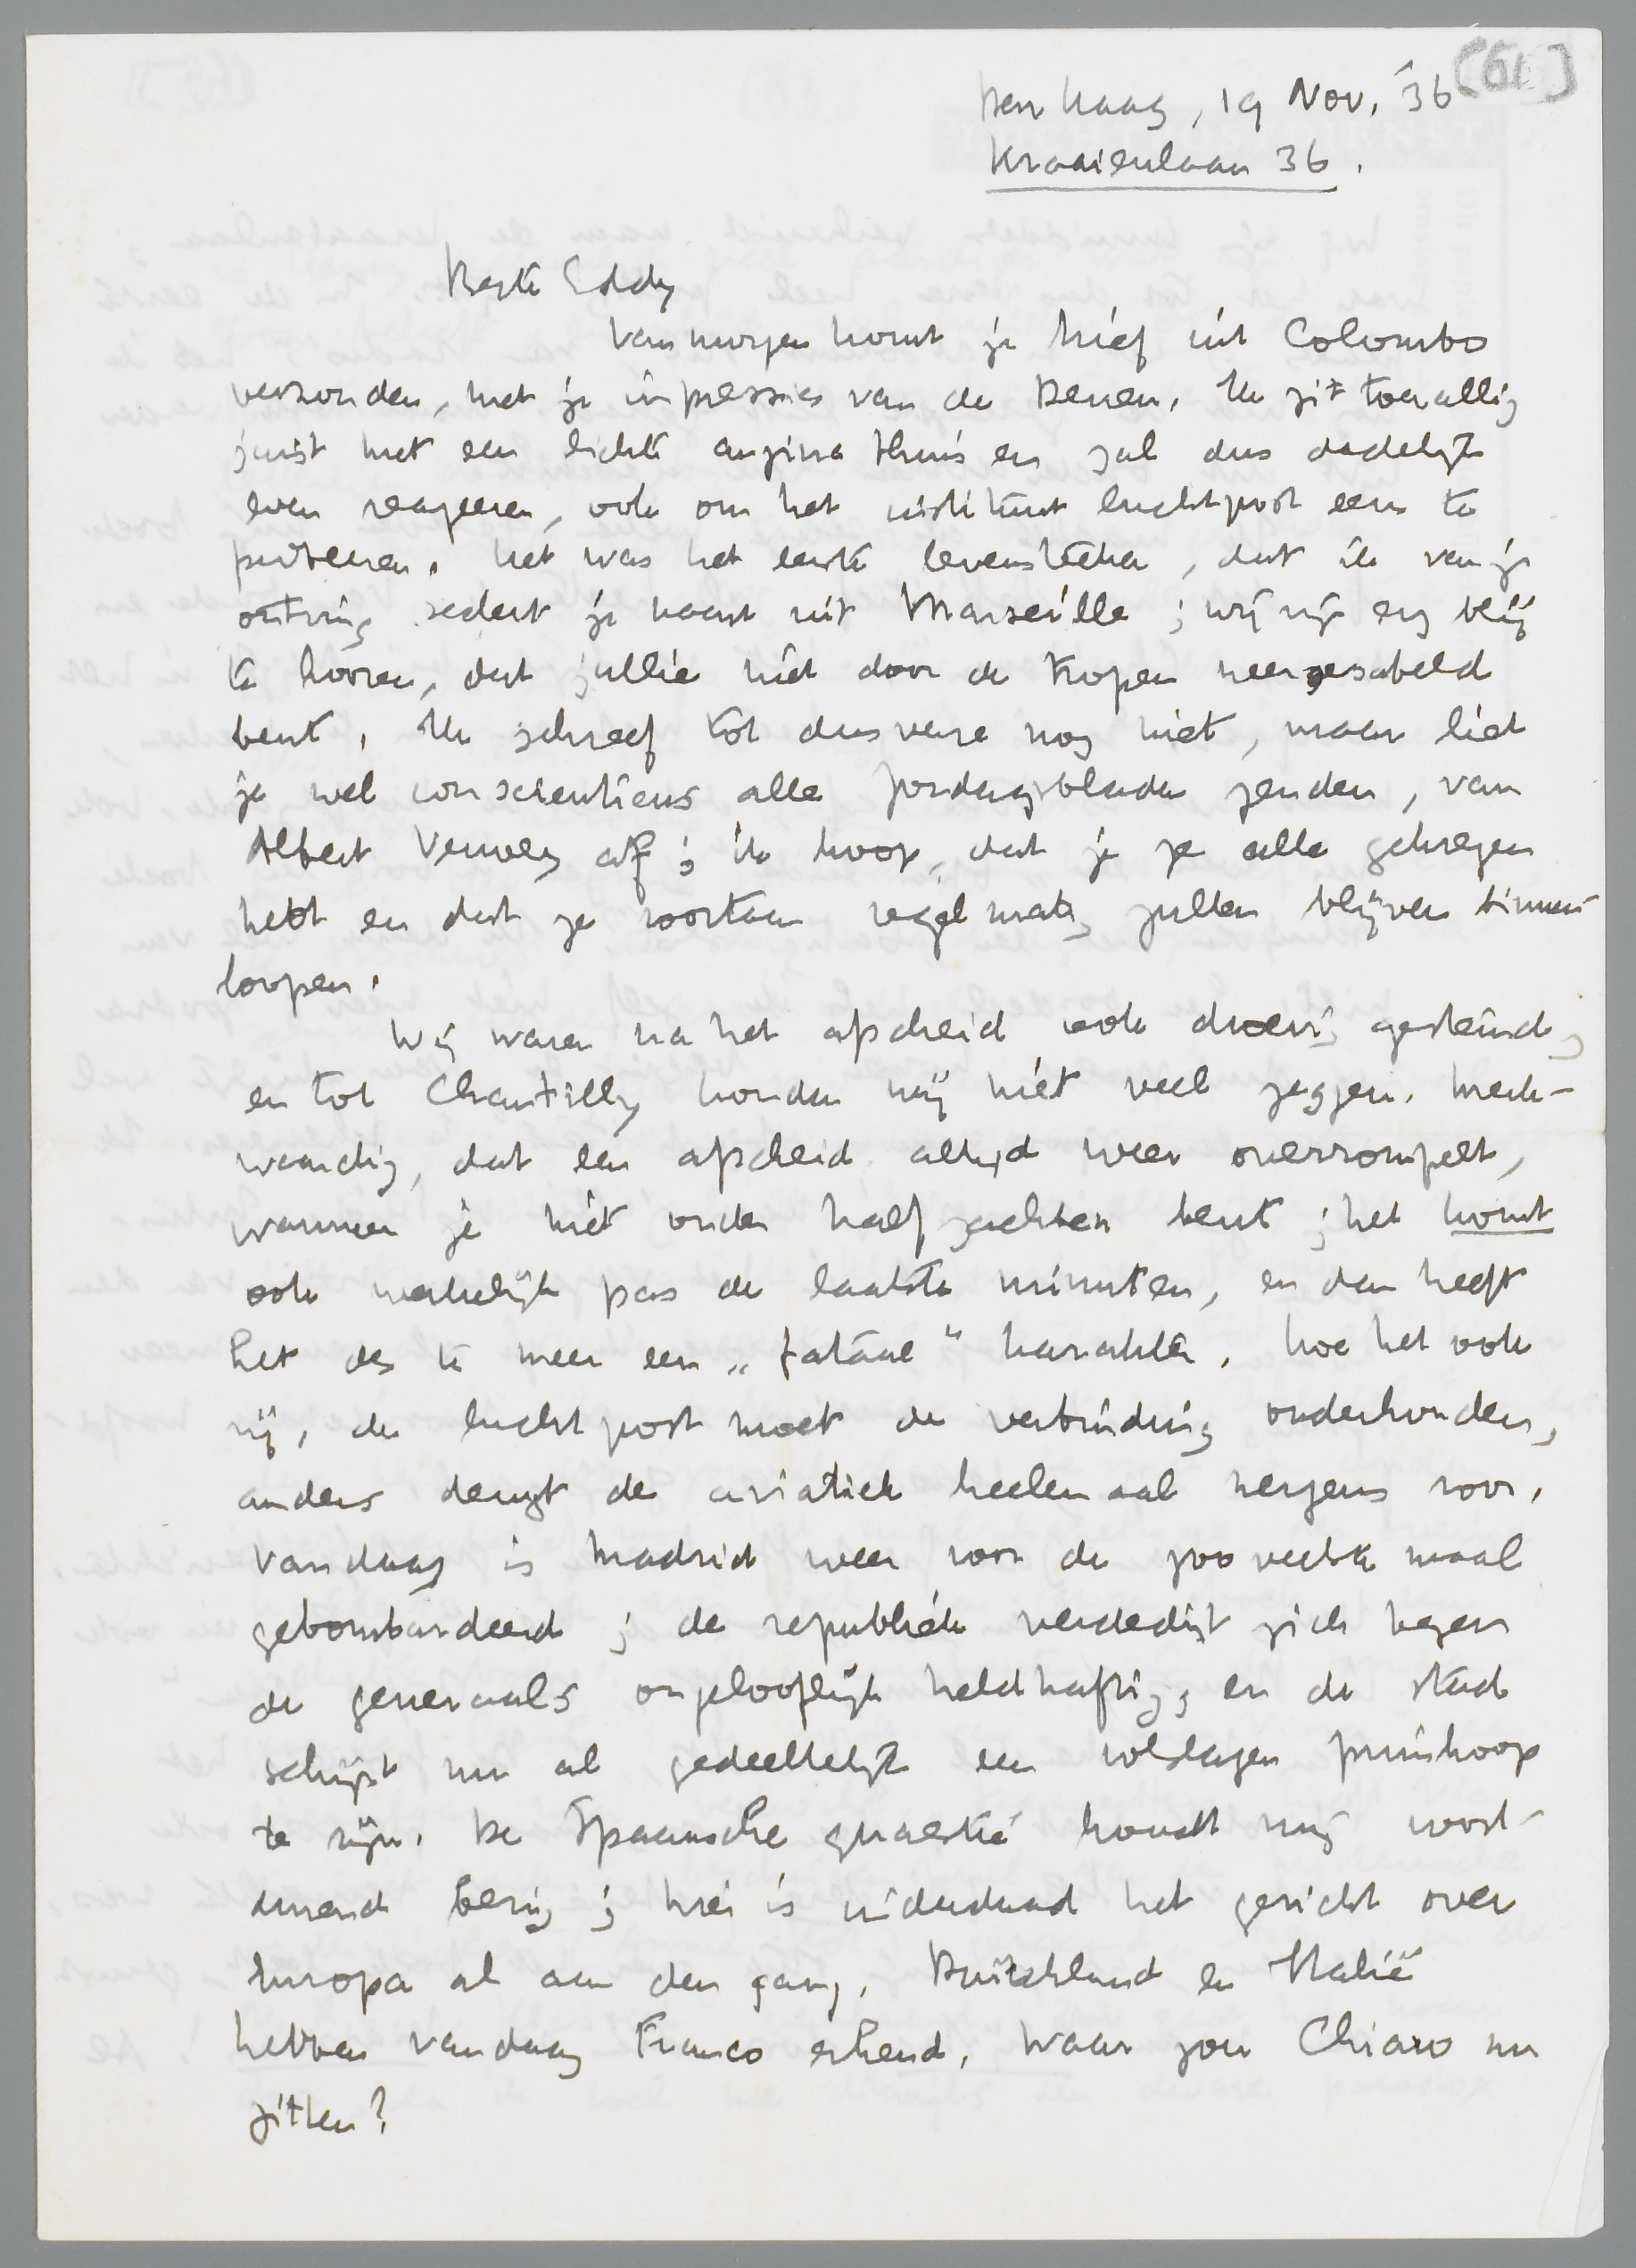 [61]
Den Haag, 19 Nov. '36
Kraaienlaan 36.
Beste Eddy
Vanmorgen komt je brief uit Colombo
verzonden, met je impressies van de Deenen. Ik zit toevallig
juist met een lichte angina thuis en zal dus dadelijk
even reageeren, ook om het instituut luchtpost eens te
probeeren. Het was het eerste levensteeken, dat ik van je
ontving sedert je kaart uit Marseille; wij zijn erg blij
te hooren, dat jullie niet door de tropen neergesabeld
bent. Ik schreef tot dusverre nog niet, maar liet
je wel conscientieus alle Zondagsbladen zenden, van
Albert Verwey af; ik hoop, dat je ze alle gekregen
hebt en dat ze voortaan regelmatig zullen blijven binnen-
loopen.
Wij waren na het afscheid ook droevig gestemd,
en tot Chantilly konden wij niet veel zeggen. Merk-
waardig, dat een afscheid altijd weer overrompelt,
wanneer je niet onder halfzachten bent; het komt
ook werkelijk pas de laatste minuten, en dan heeft
het des te meer een „fataal" karakter. Hoe het ook
zij, de luchtpost moet de verbinding onderhouden,
anders deugt de aviatiek heelemaal nergens voor.
Vandaag is Madrid weer voor de zooveelste maal
gebombardeerd; de republiek verdedigt zich tegen
de generaals ongelooflijk heldhaftig, en de stad
schijnt nu al gedeeltelijk een volslagen puinhoop
te zijn. De Spaansche quaestie houdt mij voort-
durend bezig; hier is inderdaad het gericht over
Europa al aan den gang. Duitschland en Italië
hebben vandaag Franco erkend. Waar zou Chiaro nu
zitten?